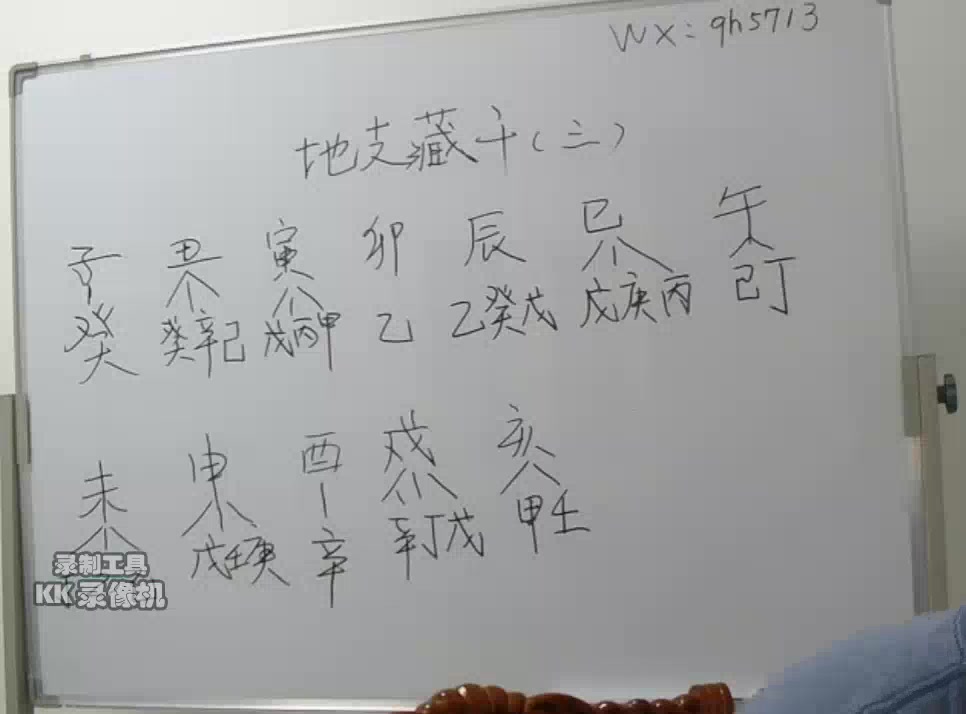 WX:qh5713
地支藏干(三)
子 丑 寅 卯 辰 巳 午
癸 癸辛己 戊丙甲 乙 乙癸戊 戊庚丙 己丁
未 申 酉 戌 亥
戊壬庚 辛 辛丁戊 甲壬
录制工具
KK录像机